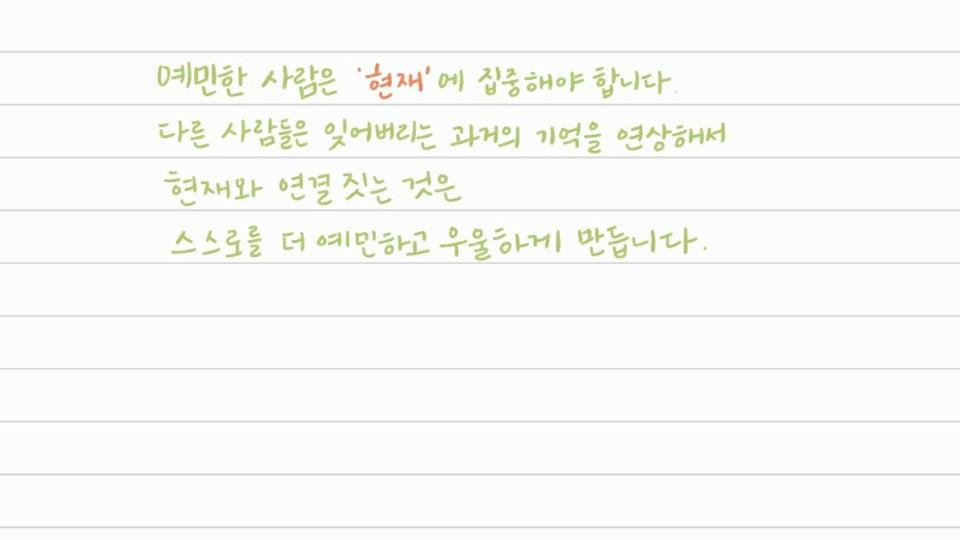 예민한 사람은 '현재'에 집중해야 합니다.
다른 사람들은 잊어버리는 과거의 기억을 연상해서
현재와 연결 짓는 것은
스스로를 더 예민하고 우울하게 만듭니다.